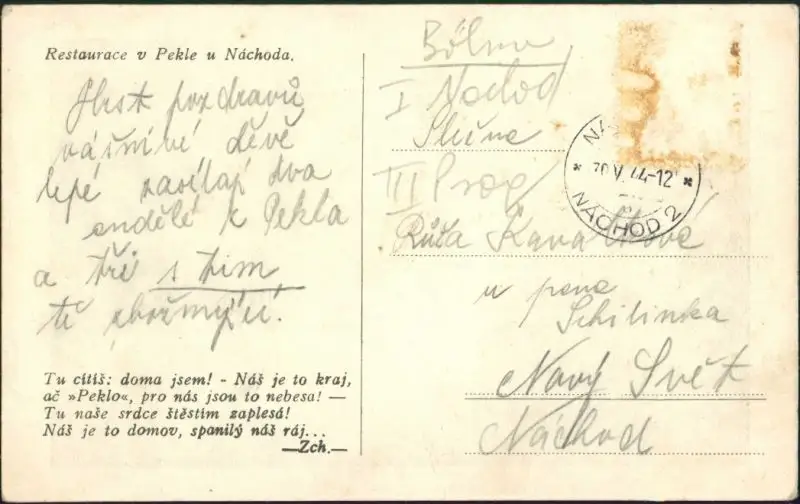 Restaurace v Pekle u Náchoda.
Hrst pozdravů
vášnivé děvě
lepé zasílají dva
andělé z Pekla
a tři s tím
ti zbožmější.
Tu cítíš: doma jsem! - Náš je to kraj,
ač »Peklo«, pro nás jsou to nebesa! —
Tu naše srdce štěstím zaplesá!
Náš je to domov, spanilý náš ráj...
—Zch.—
I Nachod
Slečna
III Prag
Růža
u pana
Schilinka
Nový Svět
Náchod
V. 44-12
* *
NÁCHOD 2